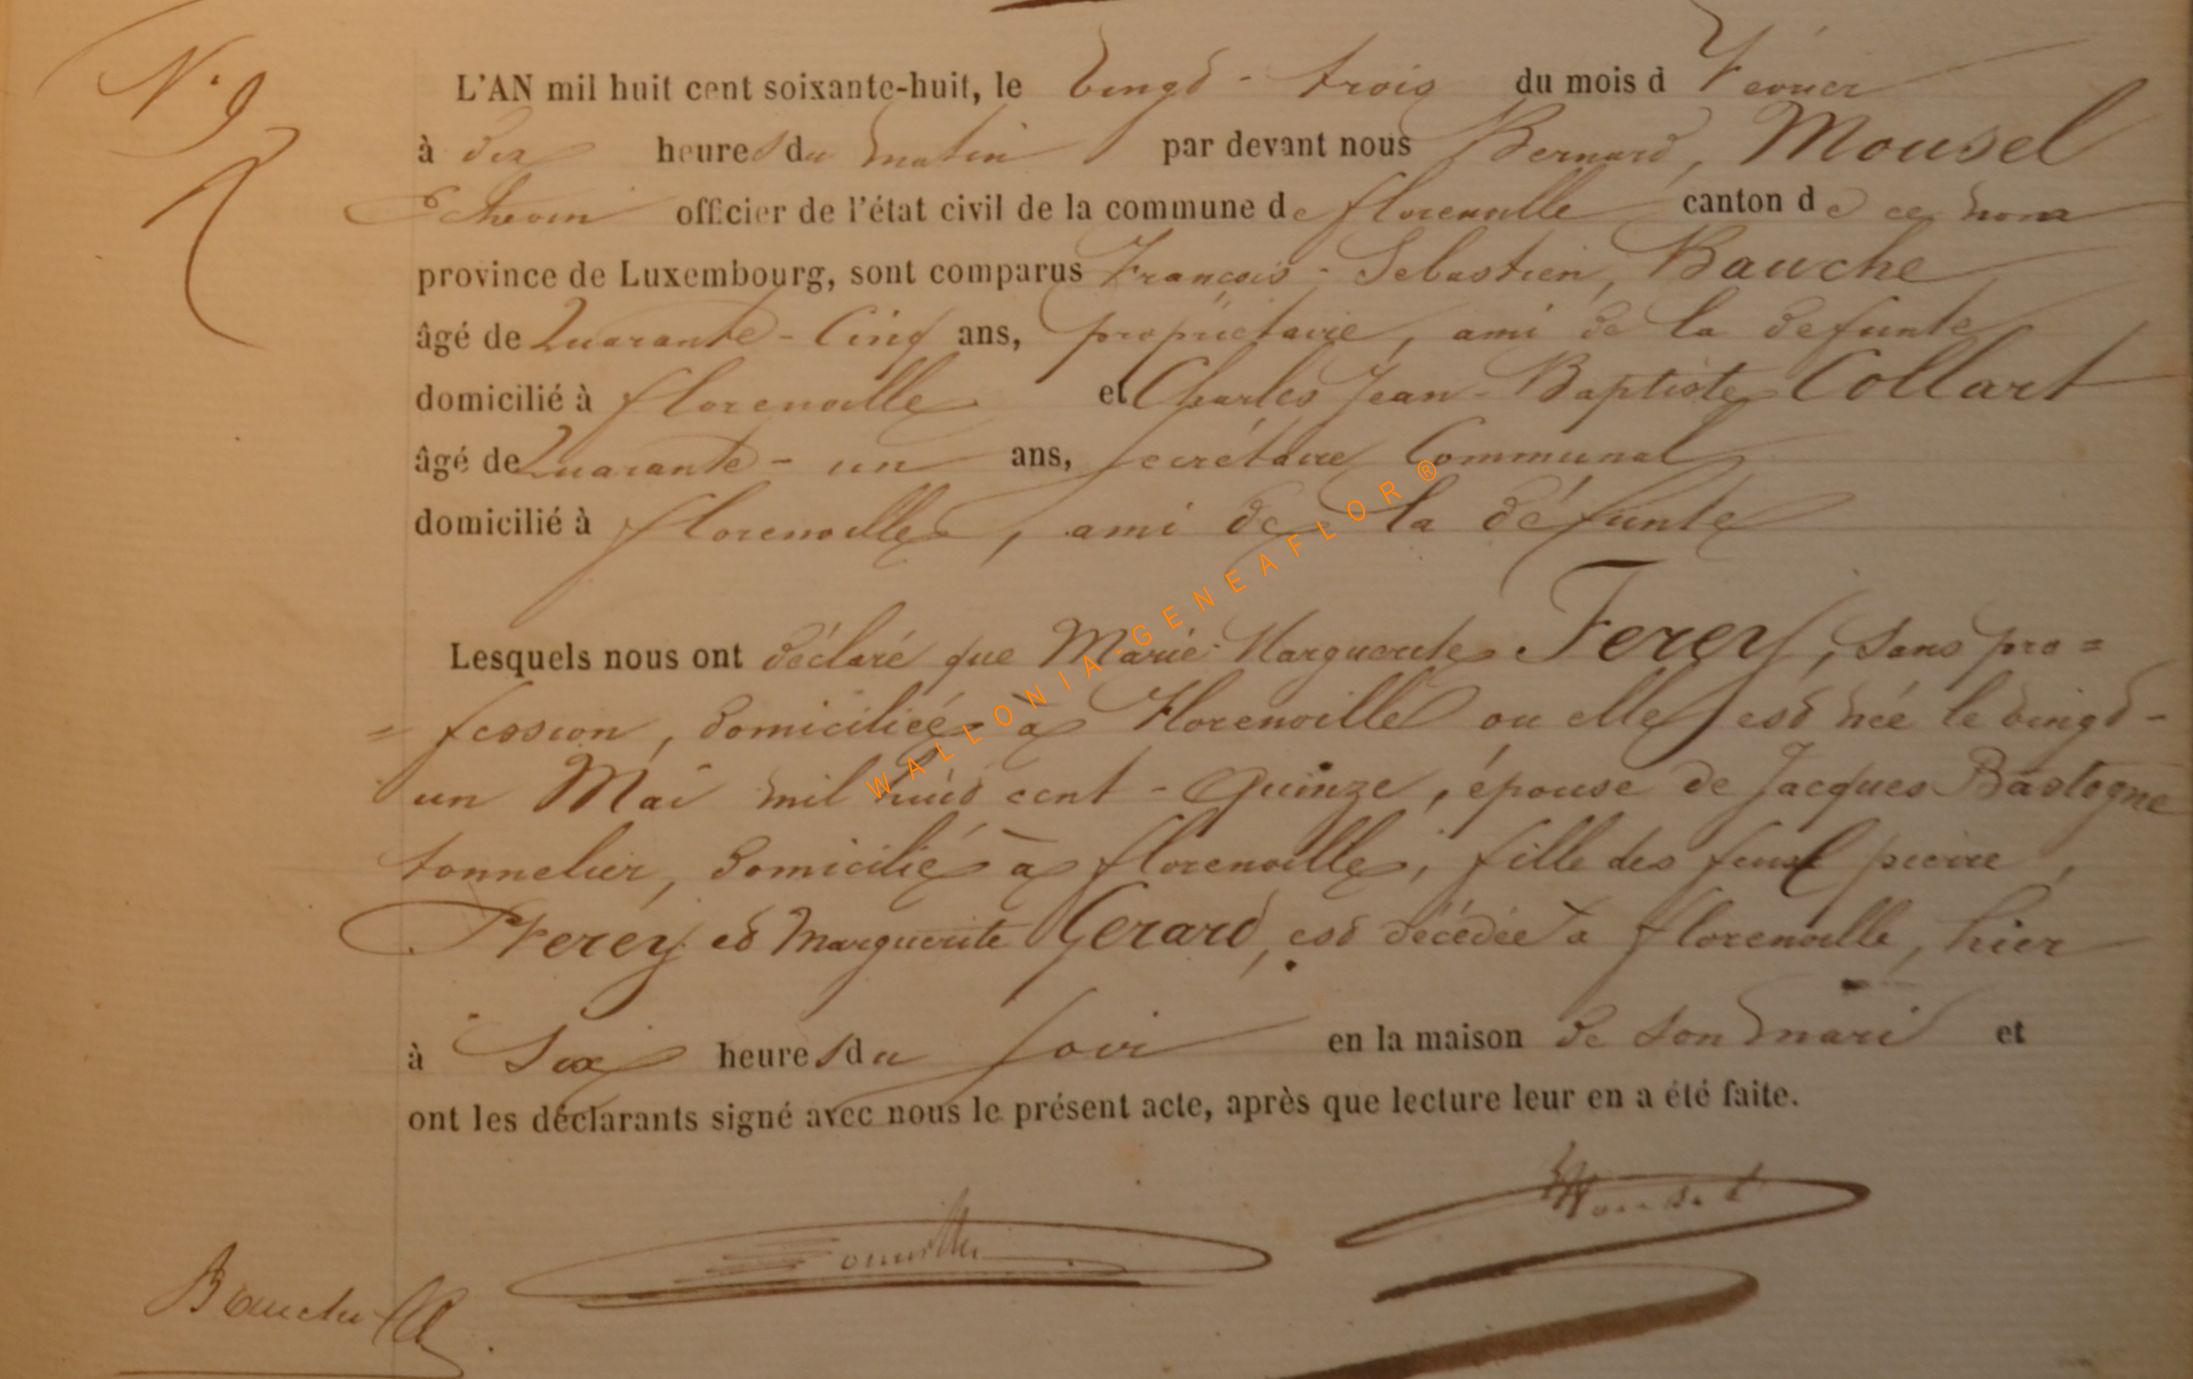 N° 9
L'AN mil huit cent soixante-huit, le vingt-trois du mois d Fevrier
à dix heures du matin par devant nous Bernard, Mousel
Echevin officier de l'état civil de la commune de florenville canton de ce nom
province de Luxembourg, sont comparus François-Sebastien, Bauche
âgé de Quarante-Cinq ans, propriétaire, ami de la defunte
domicilié à florenville et Charles Jean-Baptiste Collart
âgé de Quarante-un ans, secrétaire Communal
domicilié à florenville, ami de la défunte
Lesquels nous ont déclaré que Marie-Marguerite Ferey, sans pro=
=fession, domiciliée à Florenville ou elle est née le vingt-
un Mai mil huit cent-Quinze, épouse de Jacques Bastogne
tonnelier, domicilié à florenville, fille des feus pierre,
Ferey et Marguerite Gerard, est décédée à florenville, hier
à Six heures du soir en la maison de son mari et
ont les déclarants signé avec nous le présent acte, après que lecture leur en a été faite.
Mousel
Bauche
WALLONIA-GENEAFLOR®